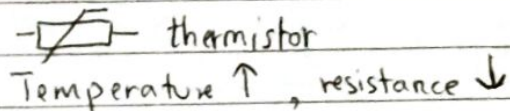 thermistor
Temperature ↑, resistance ↓